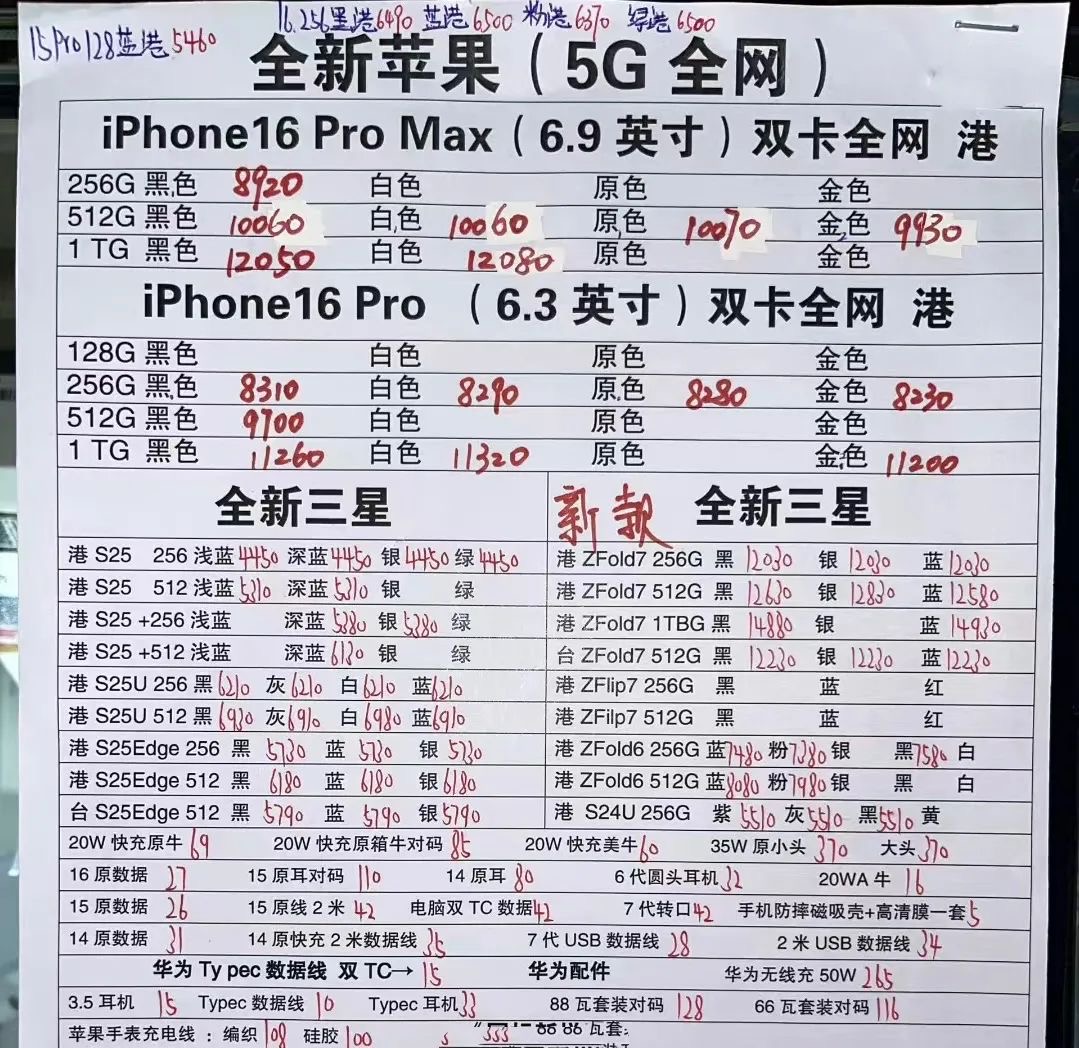 16.256黑港6490 蓝港6500 粉港6370 绿港6500
15Pro128蓝港5460
全新苹果（5G 全网）
iPhone16 Pro Max（6.9 英寸）双卡全网 港
256G 黑色 8920 白色 原色 金色
512G 黑色 10060 白色 10060 原色 10070 金色 9930
1 TG 黑色 12050 白色 12080 原色 金色
iPhone16 Pro （6.3 英寸）双卡全网 港
128G 黑色 白色 原色 金色
256G 黑色 8310 白色 8290 原色 8280 金色 8230
512G 黑色 9700 白色 原色 金色
1 TG 黑色 11260 白色 11320 原色 金色 11200
全新三星
港 S25 256 浅蓝4450 深蓝4450 银4450 绿4450
港 S25 512 浅蓝5310 深蓝5310 银 绿
港 S25 +256 浅蓝 深蓝5380 银5380 绿
港 S25 +512 浅蓝 深蓝6130 银 绿
港 S25U 256 黑6210 灰6210 白6210 蓝6210
港 S25U 512 黑6930 灰6910 白6980 蓝6910
港 S25Edge 256 黑 5730 蓝 5730 银 5730
港 S25Edge 512 黑 6180 蓝 6180 银6180
台 S25Edge 512 黑 5790 蓝 5790 银5790
新款 全新三星
港 ZFold7 256G 黑 12030 银 12030 蓝12030
港 ZFold7 512G 黑 12630 银 12830 蓝12580
港 ZFold7 1TBG 黑 14880 银 蓝14930
台 ZFold7 512G 黑 12230 银 12230 蓝12230
港 ZFlip7 256G 黑 蓝 红
港 ZFilp7 512G 黑 蓝 红
港 ZFold6 256G 蓝7480 粉7380 银 黑7580 白
港 ZFold6 512G 蓝8080 粉7980 银 黑 白
港 S24U 256G 紫 5510 灰5510 黑5510 黄
20W 快充原牛 69 20W 快充原箱牛对码 85 20W 快充美牛60 35W 原小头 370 大头370
16 原数据 27 15 原耳对码 110 14 原耳 80 6 代圆头耳机32 20WA 牛 16
15 原数据 26 15 原线 2 米 42 电脑双 TC 数据42 7 代转口42 手机防摔磁吸壳+高清膜一套5
14 原数据 31 14 原快充 2 米数据线 35 7 代 USB 数据线 28 2 米 USB 数据线 34
华为 Ty pec 数据线 双 TC→ 15 华为配件 华为无线充 50W 265
3.5 耳机 15 Typec 数据线 10 Typec 耳机33 88 瓦套装对码 128 66 瓦套装对码 116
苹果手表充电线：编织108 硅胶100